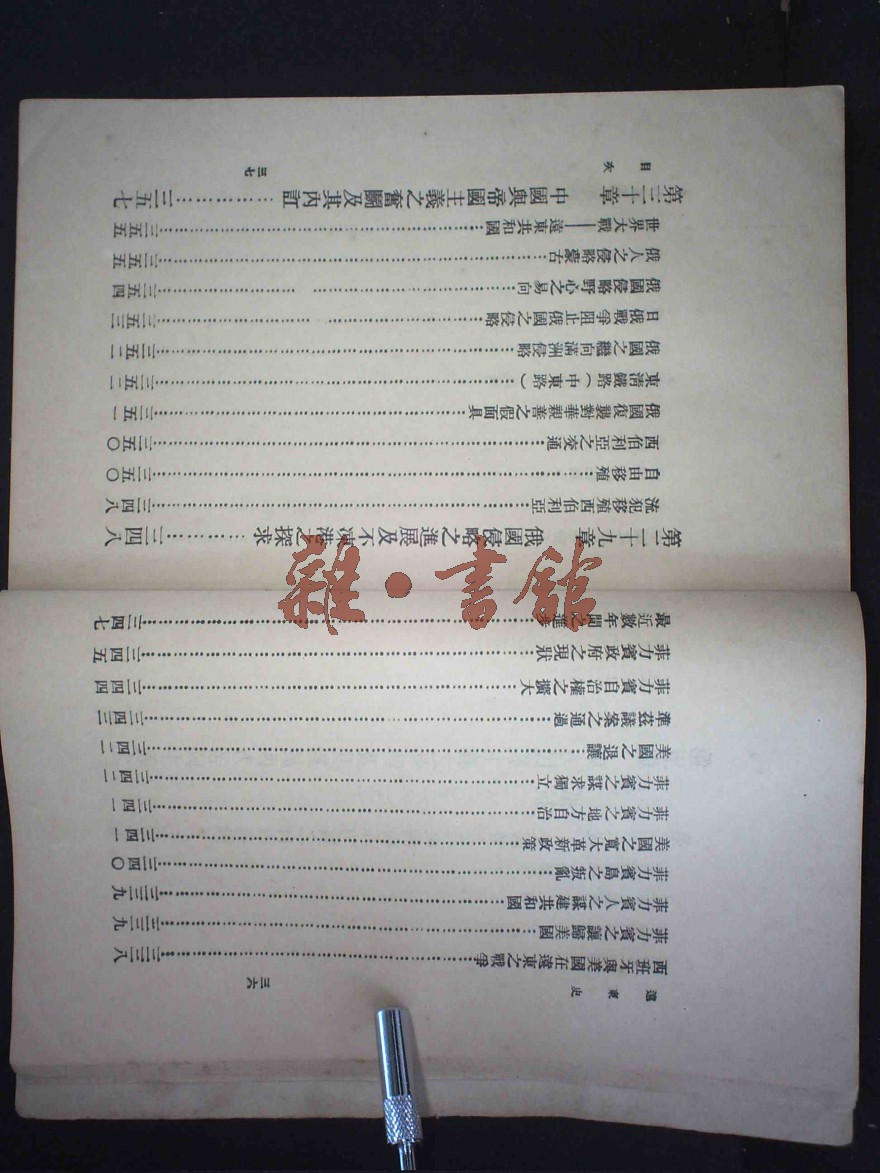 遠東史
三六
西班牙與美國在遠東之戰爭……三三八
菲力賓之讓歸美國……三三九
菲力賓人之謀建共和國……三三九
菲力賓島之叛亂……三四〇
美國之寬大革新政策……三四一
菲力賓之地方自治……三四一
菲力賓之謀求獨立……三四二
美國之退讓……三四二
準茲議案之通過……三四三
菲力賓自治權之擴大……三四四
菲力賓政府之現狀……三四五
最近數年間之進步……三四七
第二十九章 俄國侵略之進展及不凍港之探求……三四八
流犯移殖西伯利亞……三四八
自由移殖……三五〇
西伯利亞之交通……三五〇
俄國復襲對華親善之假面具……三五一
東清鐵路(中東路)……三五二
俄國之繼向滿洲侵略……三五二
日俄戰爭阻止俄國之侵略……三五三
俄國侵略野心之易向……三五四
俄人之侵略蒙古……三五五
世界大戰——遠東共和國……三五五
第三十章 中國與帝國主義之奮鬭及其內訌……三五七
目次
三七
雜·書館